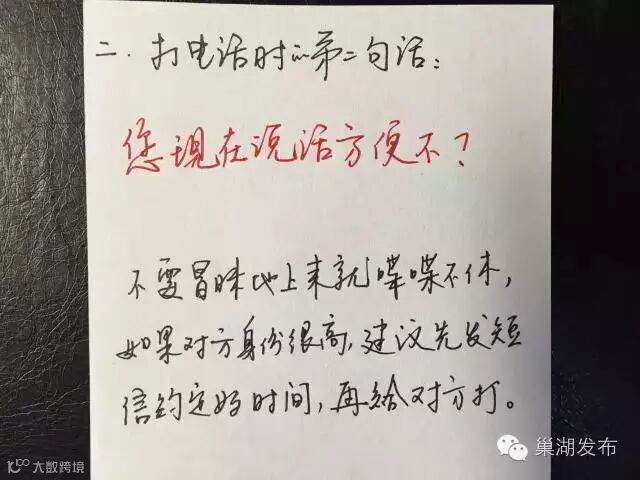 二.打电话时的第二句话:
您现在说话方便不?
不要冒昧地上来就喋喋不休,
如果对方身份很高,建议先发短
信约定好时间,再给对方打。
巢湖发布
大数跨境